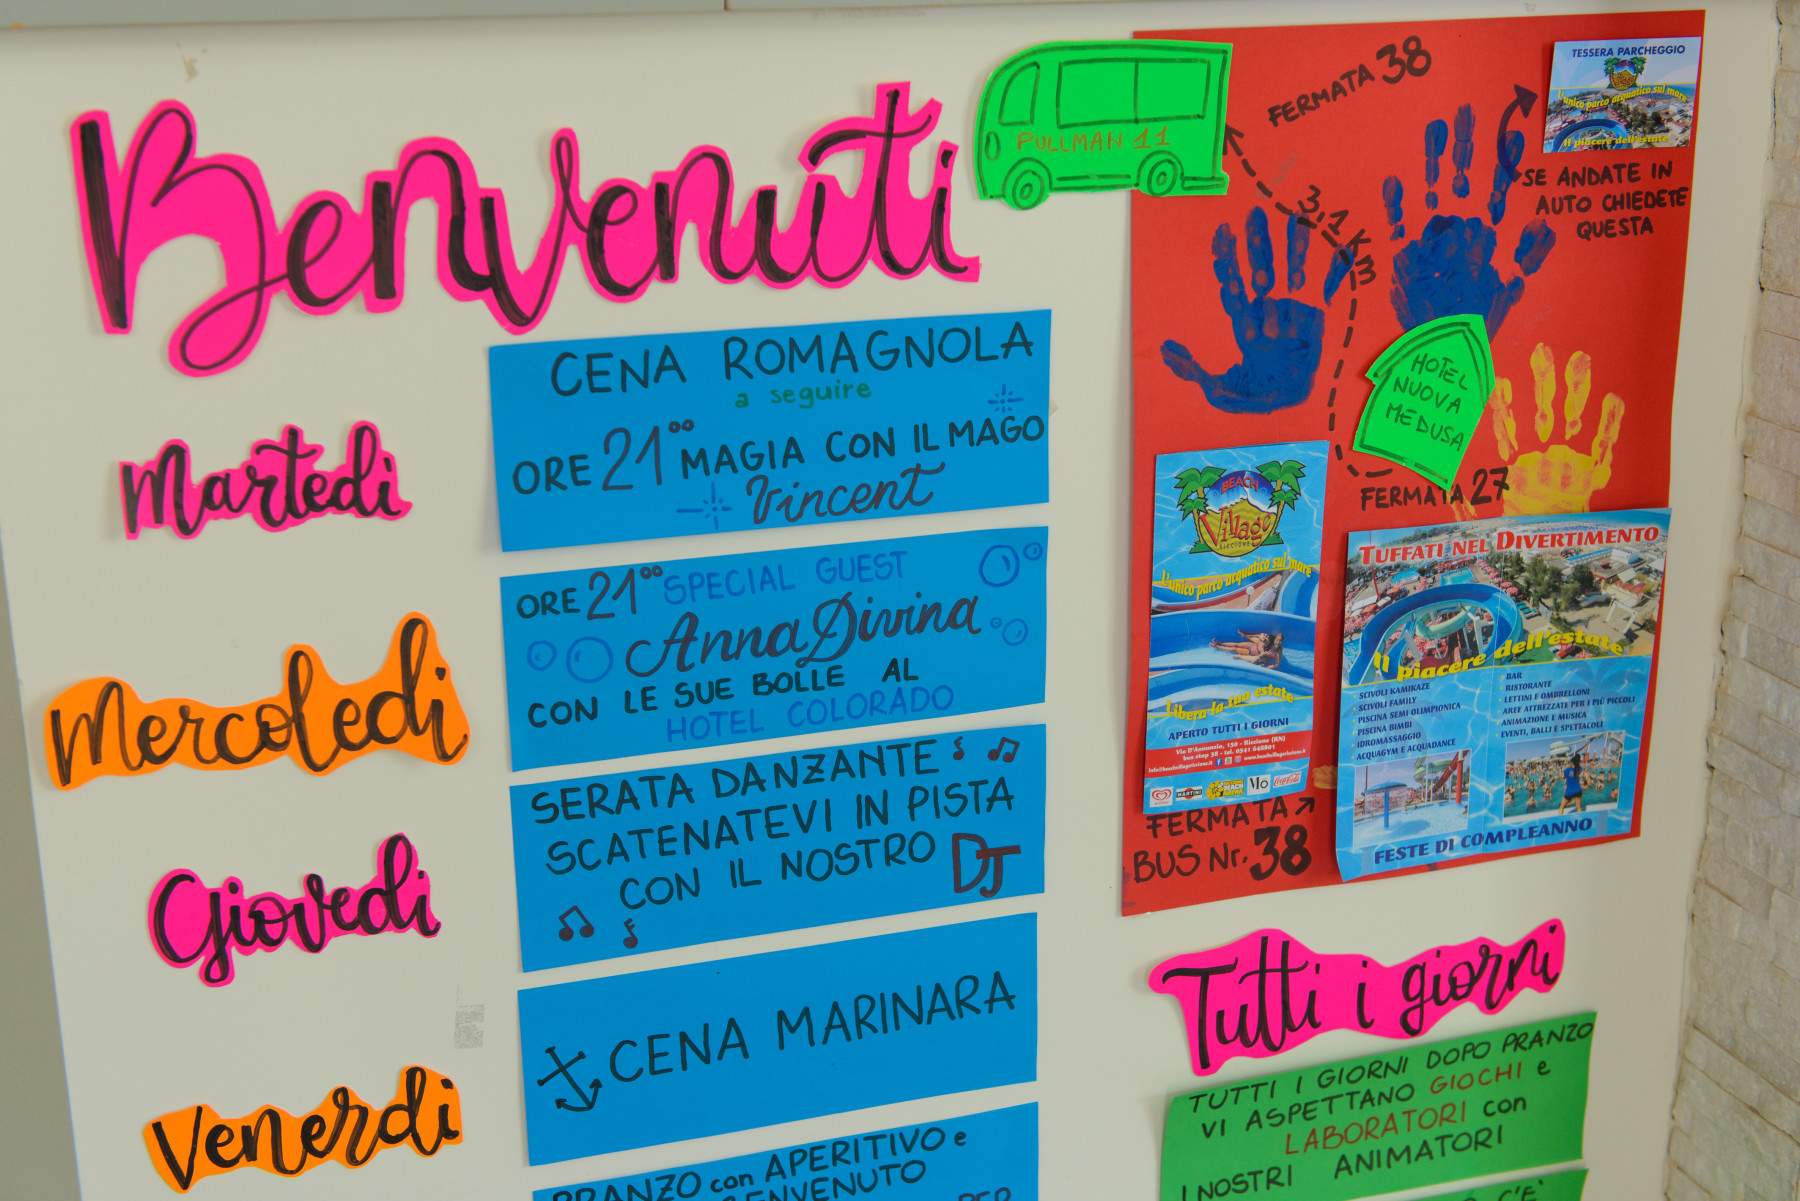 Benvenuti
Martedì
CENA ROMAGNOLA
a seguire
ORE 21°° MAGIA CON IL MAGO
Vincent
Mercoledì
ORE 21°° SPECIAL GUEST
Anna Divina
CON LE SUE BOLLE AL
HOTEL COLORADO
Giovedì
SERATA DANZANTE
SCATENATEVI IN PISTA
CON IL NOSTRO DJ
Venerdì
CENA MARINARA
PRANZO con APERITIVO e
BENVENUTO
PER
PULLMAN 11
FERMATA 38
3,1 KM
TESSERA PARCHEGGIO
L'unico parco acquatico sul mare
Il piacere dell'estate
SE ANDATE IN
AUTO CHIEDETE
QUESTA
HOTEL
NUOVA
MEDUSA
FERMATA 27
BEACH
Village
RICCIONE
L'unico parco acquatico sul mare
Libera la tua estate
APERTO TUTTI I GIORNI
Via D'Annunzio, 150 - Riccione (RN)
bus stop 38 - tel. 0541 648801
info@beachvillagericcione.it www.beachvillagericcione.it
MARTINI
BEACH ARENA
Mo
Coca-Cola
FERMATA
BUS Nr. 38
TUFFATI NEL DIVERTIMENTO
Il piacere dell'estate
· SCIVOLI KAMIKAZE
· SCIVOLI FAMILY
· PISCINA SEMI OLIMPIONICA
· PISCINA BIMBI
· IDROMASSAGGIO
· ACQUAGYM E ACQUADANCE
· BAR
· RISTORANTE
· LETTINI E OMBRELLONI
· AREE ATTREZZATE PER I PIÙ PICCOLI
· ANIMAZIONE E MUSICA
· EVENTI, BALLI E SPETTACOLI
FESTE DI COMPLEANNO
Tutti i giorni
TUTTI I GIORNI DOPO PRANZO
VI ASPETTANO GIOCHI e
LABORATORI con
I NOSTRI ANIMATORI
C'E'